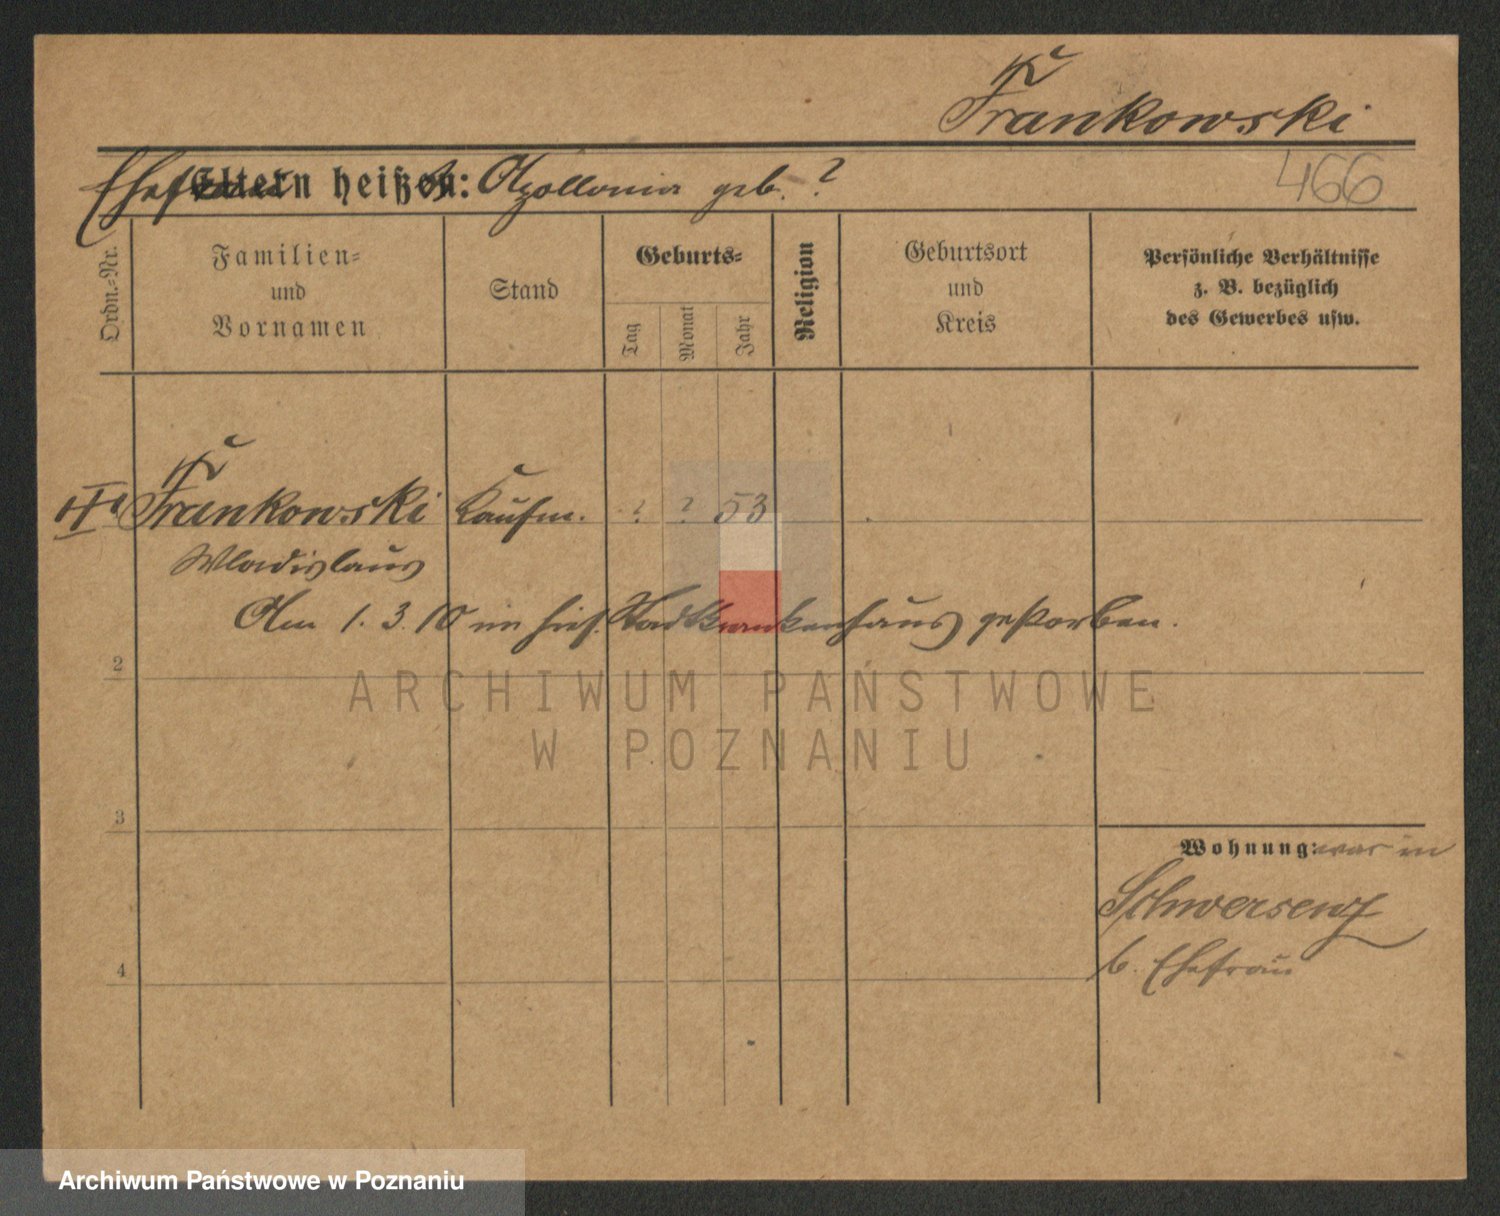 Frankowski
466
Ehefrau
Eltern heißen: Apollonia geb. ?
Ordn.-Nr.
Familien-
und
Vornamen
Stand
Geburts-
Tag
Monat
Jahr
Religion
Geburtsort
und
Kreis
Persönliche Verhältnisse
z. B. bezüglich
des Gewerbes usw.
Frankowski Kaufm. ? ? 53
Wladislaus
Am 1. 3. 10 im hies. Stadtkrankenhaus gestorben.
2
ARCHIWUM PAŃSTWOWE
W POZNANIU
3
Wohnung: war in
Schwersenz
b. Ehefrau
4
Archiwum Państwowe w Poznaniu